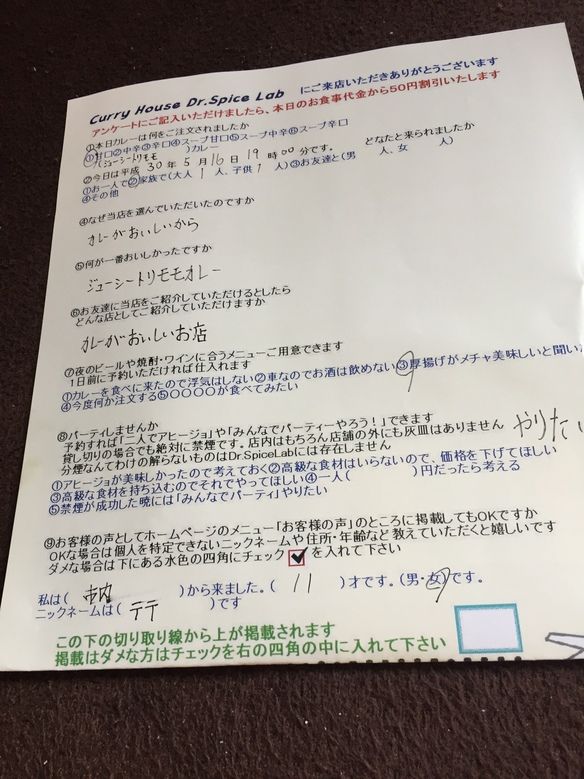 Curry House Dr.Spice Lab にご来店いただきありがとうございます
アンケートにご記入いただけましたら、本日のお食事代金から50円割引いたします
①本日カレーは何をご注文されましたか
①甘口②中辛③辛口④スープ甘口⑤スープ中辛⑥スープ辛口
(ジューシートリモモ )カレー
②今日は平成 30年 5月 16日 19時00分です。 どなたと来られましたか
①お一人で②家族で(大人 1 人、子供 1 人)③お友達と(男 人、女 人)
④その他
④なぜ当店を選んでいただいたのですか
カレーがおいしいから
⑤何が一番おいしかったですか
ジューシートリモモカレー
⑥お友達に当店をご紹介していただけるとしたら
どんな店としてご紹介していただけますか
カレーがおいしいお店
⑦夜のビールや焼酎・ワインに合うメニューご用意できます
1日前に予約いただければ仕入れます
①カレーを食べに来たので浮気はしない②車なのでお酒は飲めない③厚揚げがメチャ美味しいと聞い
④今度何か注文する⑤○○○○が食べてみたい
⑧パーティしませんか
予約すれば「二人でアヒージョ」や「みんなでパーティーやろう!」できます
貸し切りの場合でも絶対に禁煙です。店内はもちろん店舗の外にも灰皿はありません やりたい
分煙なんてわけの解らないものはDr.SpiceLabには存在しません
①アヒージョが美味しかったので考えておく②高級な食材はいらないので、価格を下げてほしい
③高級な食材を持ち込むのでそれでやってほしい④一人( )円だったら考える
⑤禁煙が成功した暁には「みんなでパーティ」やりたい
⑨お客様の声としてホームページのメニュー「お客様の声」のところに掲載してもOKですか
OKな場合は個人を特定できないニックネームや住所・年齢など教えていただくと嬉しいです
ダメな場合は下にある水色の四角にチェック☑を入れて下さい
私は( 市内 )から来ました。( 11 )才です。(男・女)です。
ニックネームは( テテ )です
この下の切り取り線から上が掲載されます
掲載はダメな方はチェックを右の四角の中に入れて下さい